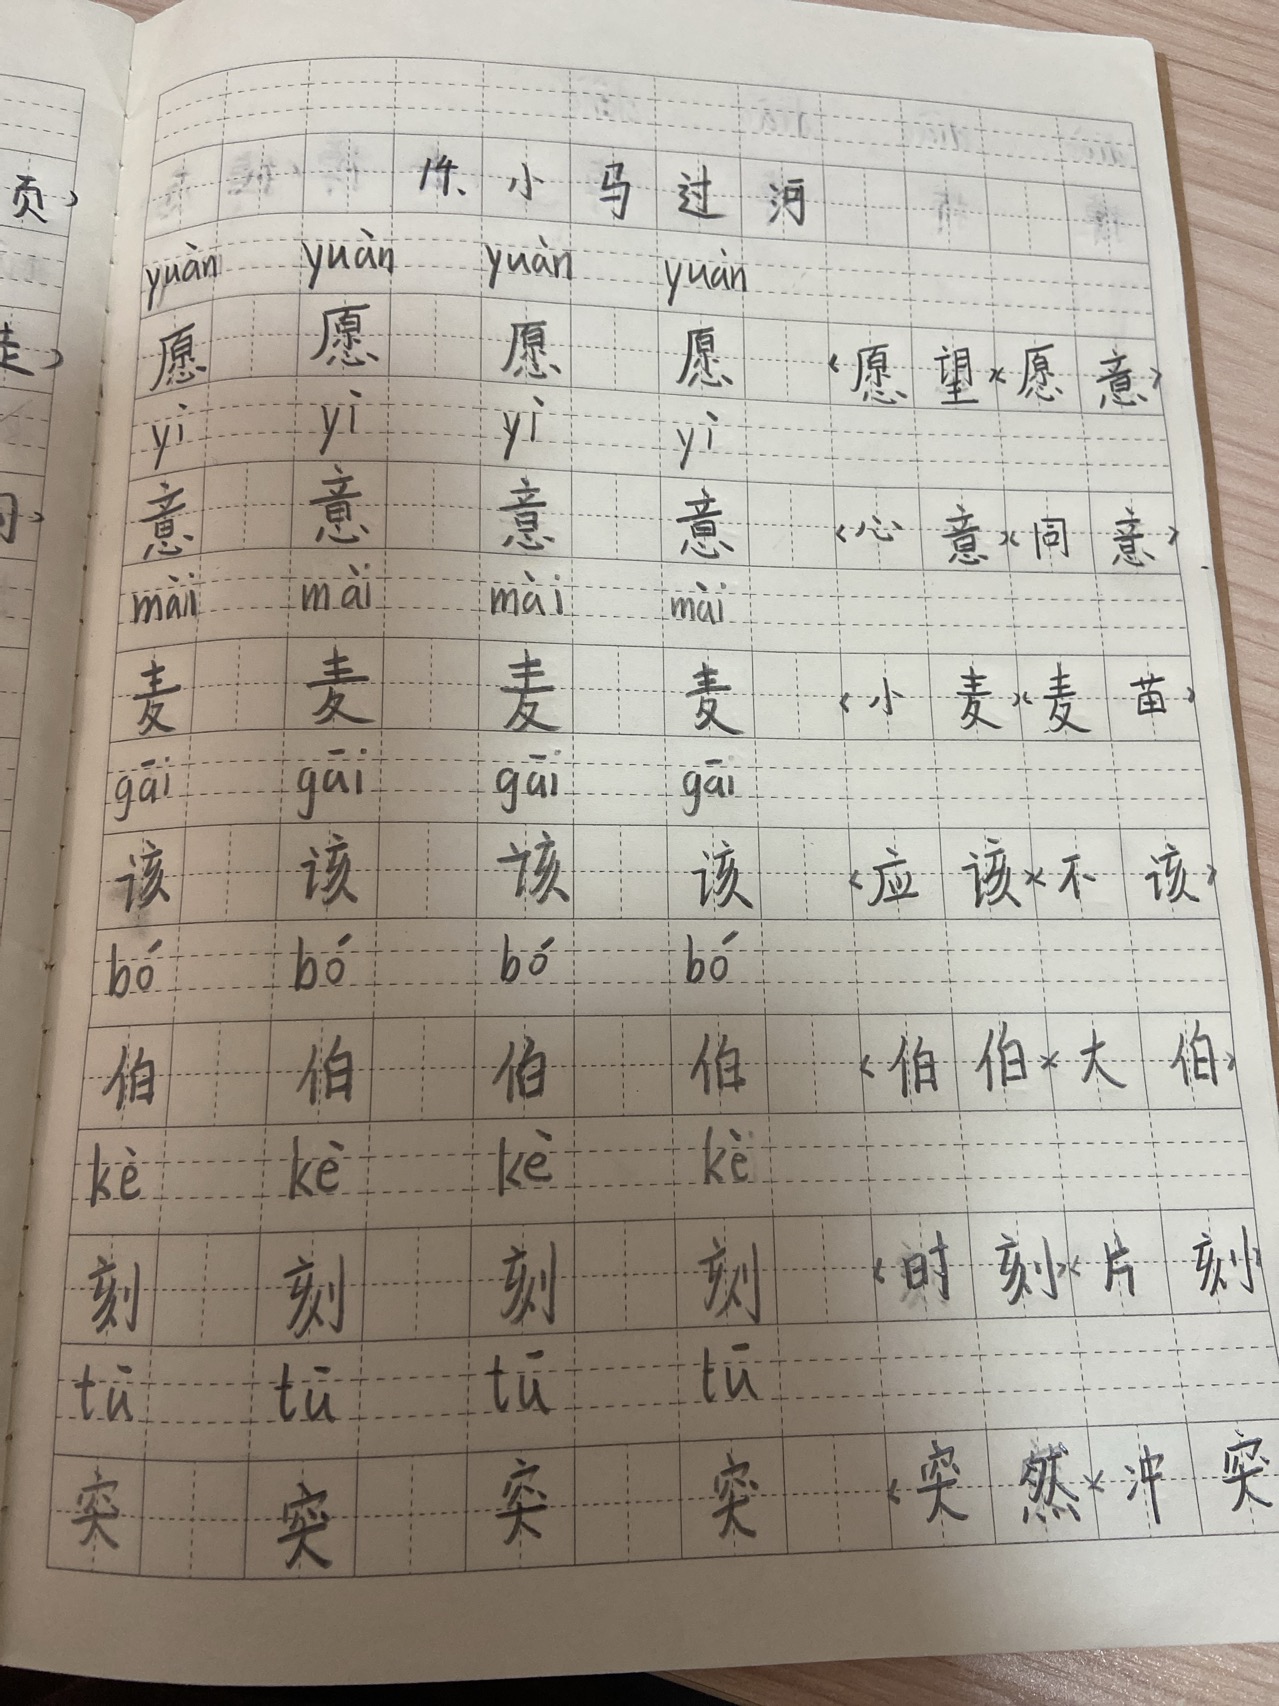 页)
14、小马过河
yuàn yuàn yuàn yuàn
愿 愿 愿 愿 (愿望)(愿意)
yì yì yì yì
意 意 意 意 (心意)(同意)
mài mài mài mài
麦 麦 麦 麦 (小麦)(麦苗)
gāi gāi gāi gāi
该 该 该 该 (应该)(不该)
bó bó bó bó
伯 伯 伯 伯 (伯伯)(大伯)
kè kè kè kè
刻 刻 刻 刻 (时刻)(片刻)
tū tū tū tū
突 突 突 突 (突然)(冲突